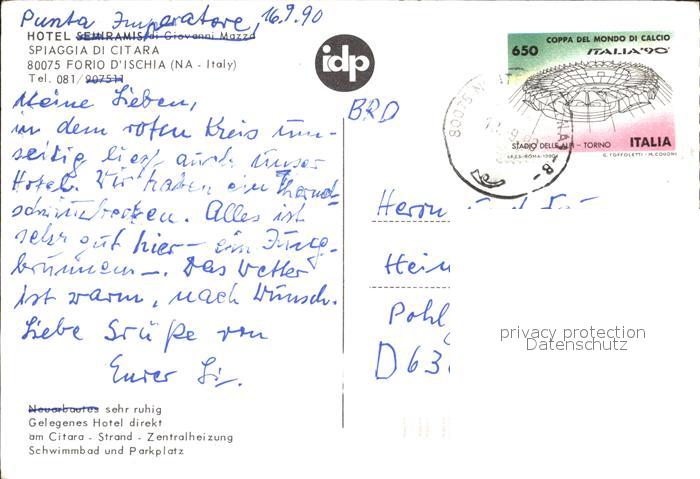 Punta Imperatore, 16.9.90
HOTEL SEMIRAMIS di Giovanni Mazza
SPIAGGIA DI CITARA
80075 FORIO D'ISCHIA (NA - Italy)
Tel. 081/907511
Meine Lieben,
in dem roten Kreis um-
seitig liegt auch unser
Hotel. Wir haben ein Thermal-
schwimmbecken. Alles ist
sehr gut hier - ein Jung-
brunnen -. Das Wetter
ist warm, nach Wunsch.
Liebe Grüße von
Eurer
Neuerbautes sehr ruhig
Gelegenes Hotel direkt
am Citara - Strand - Zentralheizung
Schwimmbad und Parkplatz
idp
BRD
650 COPPA DEL MONDO DI CALCIO
ITALIA'90
STADIO DELLE ALPI - TORINO ITALIA
I.P.Z.S. ROMA - 1990 G. TOFFOLETTI - M. CODONI
80075
-8-
Herrn und
Hein
Pohl
D 63
privacy protection
Datenschutz